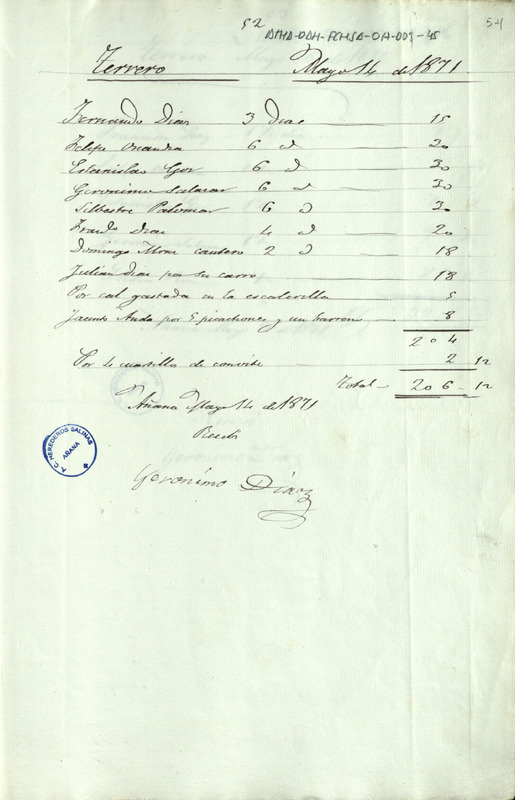 52
54
AMD-DAH-FCHSA-OA-009-45
Terrero Mayo 14 de 1871
Fernando Dias 3 Dias 15
Felipe Onandia 6 d 30
Estanislao Gor 6 d 30
Geronimo Salazar 6 d 30
Silbestre Palomar 6 d 30
Dias 4 d 20
Domingo cantero 2 d 18
Julian Dias por su carro 18
Por cal gastada en la escalerilla 5
Jacinto Anda por 5 picachones y un barron 8
204
Por de convite 2 12
Total 206-12
Añana Mayo 14 de 1871
Recibi
Geronimo Diaz
A.C. HEREDEROS SALINAS
AÑANA